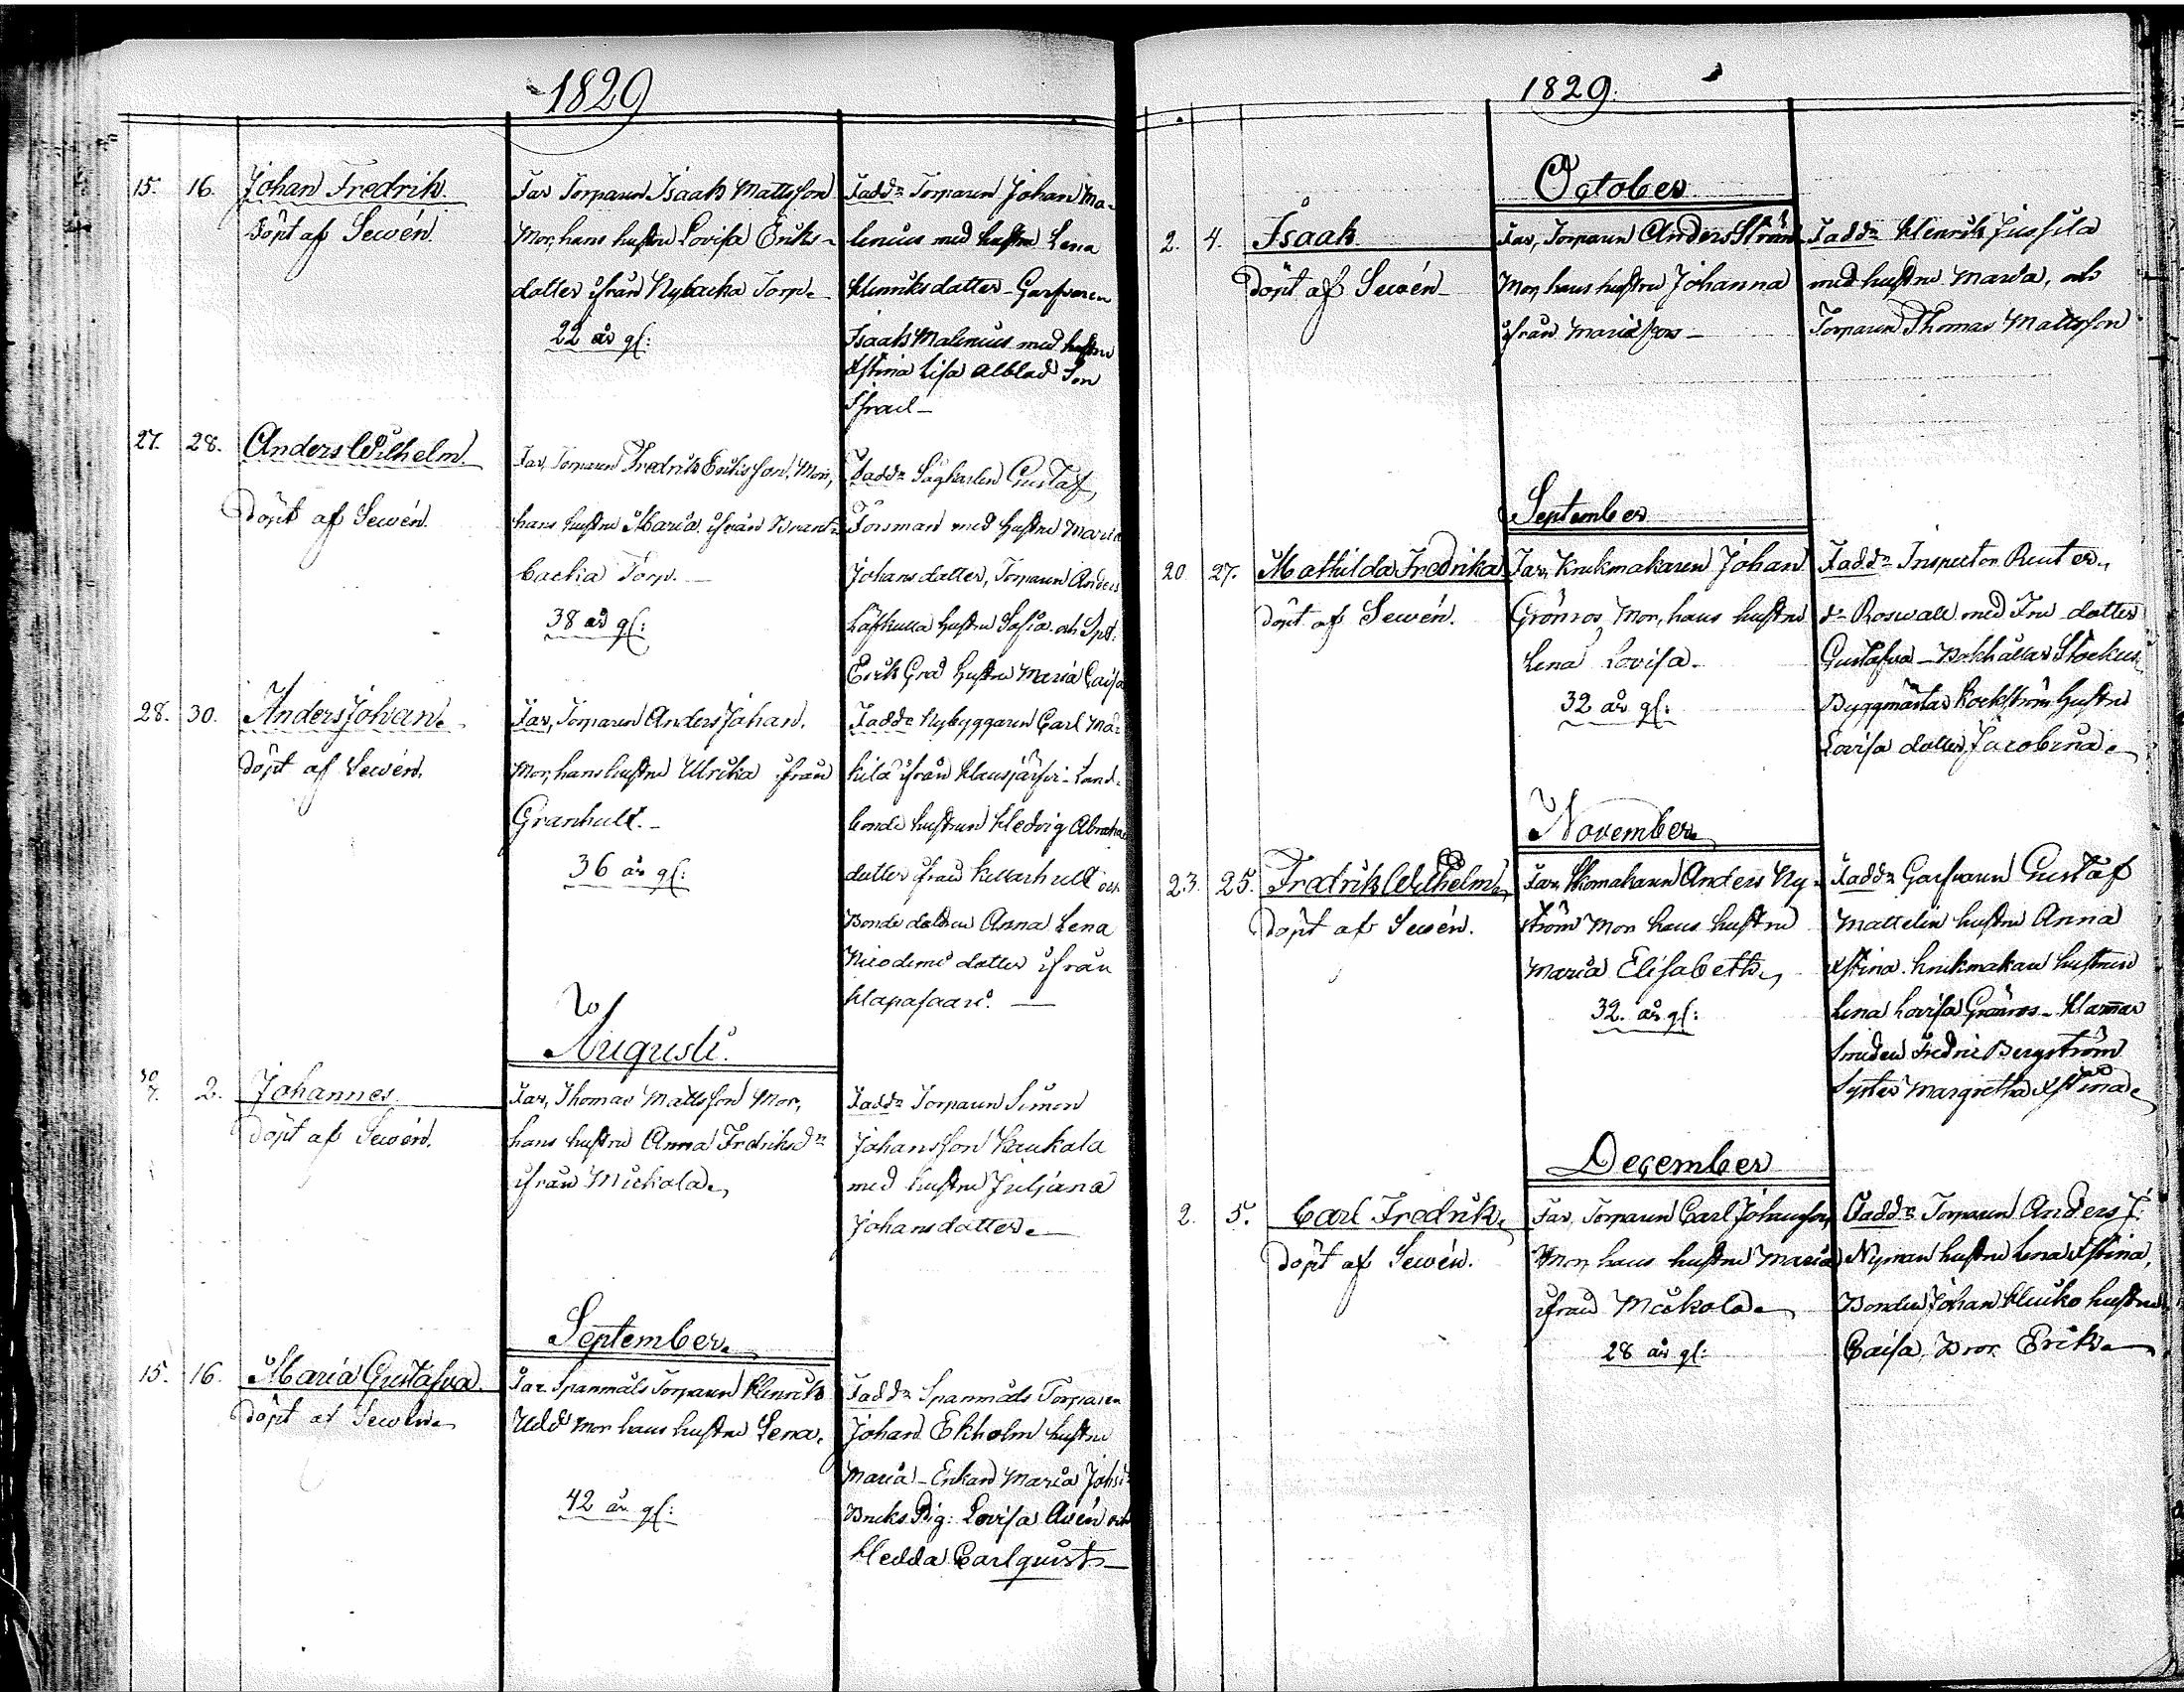 1829
15. 16. Johan Fredrik.
Döpt af Sewén.
Far Torparen Isaak Mattsson
Mor, hans hustru Lovisa Eriks-
dotter ifrån Nybacka Torp.
22 år gl:
Fadd: Torparen Johan Ma-
lenius med hustru Lena
Henriksdotter - Garfvaren
Isaak Malenius med hustru
Stina Lisa Alblad Son
Israel -
27. 28. Anders Wilhelm.
Döpt af Sewén.
Far, Torparen Fredrik Eriksson, Mor,
hans hustru Maria ifrån
backa Torp.
38 år gl:
Fadd: Sågkarlen Gustaf
Forsman med hustru Maria
Johansdotter, Torparen Anders
hustru Sofia och
Erik Grå hustru Maria Caisa
28. 30. Anders Johan.
Döpt af Sewén.
Far, Torparen Anders Johan.
Mor, hans hustru Ulrika ifrån
Granhult.
36 år gl:
Fadd: Nybyggaren Carl Mä-
kilä ifrån Hausjärfvi - Land-
bonde hustrun Hedvig Abraha
dotter ifrån Kellarhult och
Bonde dottren Anna Lena
Nicodemi dotter ifrån
Hapasaari. -
Augusti.
30/7. 2. Johannes.
Döpt af Sewén.
Far, Thomas Mattsson Mor,
hans hustru Anna Fredriksd:r
ifrån Mickola.
Fadd: Torparen Simon
Johansson Kaukola
med hustru Juliana
Johansdotter. -
September.
15. 16. Maria Gustafva.
Döpt af Sewén.
Far. Spanmåls Torparen Henrik
Udd Mor hans hustru Lena.
42 år gl:
Fadd: Spanmåls Torparen
Johan Ekholm hustru
Maria - Enkan Maria Johs:
Bruks Pig: Lovisa Avén och
Hedda Carlquist -
1829.
October
2. 4. Isaak
Döpt af Sewén
Far, Torparen Anders Ström
Mor, hans hustru Johanna
ifrån Mariæfors -
Fadd: Henrik Jussila
med hustru Maria, och
Torparen Thomas Mattsson
September
20 27. Mathilda Fredrika
Döpt af Sewén.
Far, Krukmakaren Johan
Grönros, Mor, hans hustru
Lena Lovisa.
32 år gl:
Fadd: Inspector Reuter,
d:o Roswall med Fru dotter
Gustafva - Bokhållar Stockus
Byggmästar Rockström hustru
Lovisa dotter Jacobina.
November
23. 25. Fredrik Wilhelm,
Döpt af Sewén.
Far, Skomakaren Anders Ny-
ström Mor hans hustru
Maria Elisabeth,
32. år gl:
Fadd: Garfvaren Gustaf
Mattelin hustru Anna
Stina. Krukmakare hustrun
Lena Lovisa Grönros - Hammar
Smeden Fredric Bergström
Syster Margretha Stina.
December
2. 5. Carl Fredrik.
Döpt af Sewén.
Far, Torparen Carl Johansson,
Mor, hans hustru Maria
ifrån Mickola.
28 år gl:
Fadd: Torparen Anders J:
Nyman hustru Lena Stina,
Bonden Johan Heiko hustru
Caisa, Bror Erik.